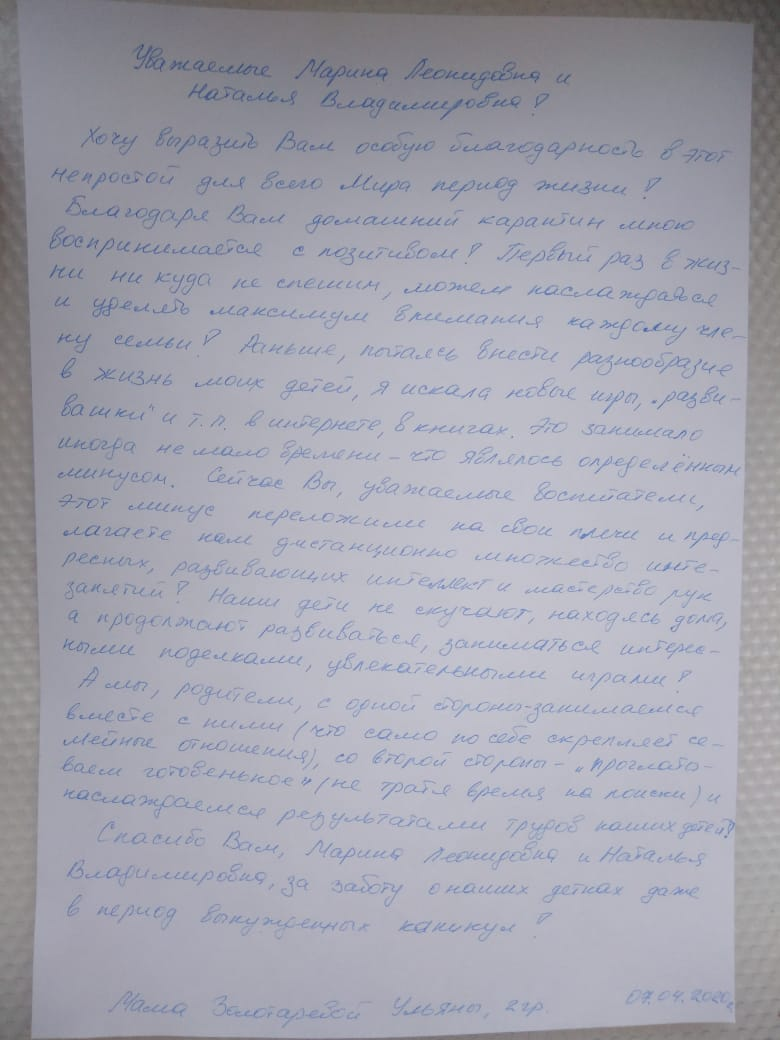 Уважаемые Марина Леонидовна и
Наталья Владимировна!
Хочу выразить Вам особую благодарность в этот
непростой для всего Мира период жизни!
Благодаря Вам домашний карантин мною
воспринимается с позитивом! Первый раз в жиз-
ни ни куда не спешим, можем наслаждаться
и уделять максимум внимания каждому чле-
ну семьи! Раньше, пытаясь внести разнообразие
в жизнь моих детей, я искала новые игры, „разви-
вашки" и т.п. в интернете, в книгах. Это занимало
иногда не мало времени - что являлось определённым
минусом. Сейчас Вы, уважаемые воспитатели,
этот минус переложили на свои плечи и пред-
лагаете нам дистанционно множество инте-
ресных, развивающих интеллект и мастерство рук
занятий! Наши дети не скучают, находясь дома,
а продолжают развиваться, заниматься интерес-
ными поделками, увлекательными играми!
А мы, родители, с одной стороны-занимаемся
вместе с ними (что само по себе скрепляет се-
мейные отношения), со второй стороны - „проглаты-
ваем готовенькое" (не тратя время на поиски) и
наслаждаемся результатами трудов наших детей!
Спасибо Вам, Марина Леонидовна и Наталья
Владимировна, за заботу о наших детках даже
в период вынужденных каникул!
Мама Золотаревой Ульяны, 2 гр. 07.04.2020г.